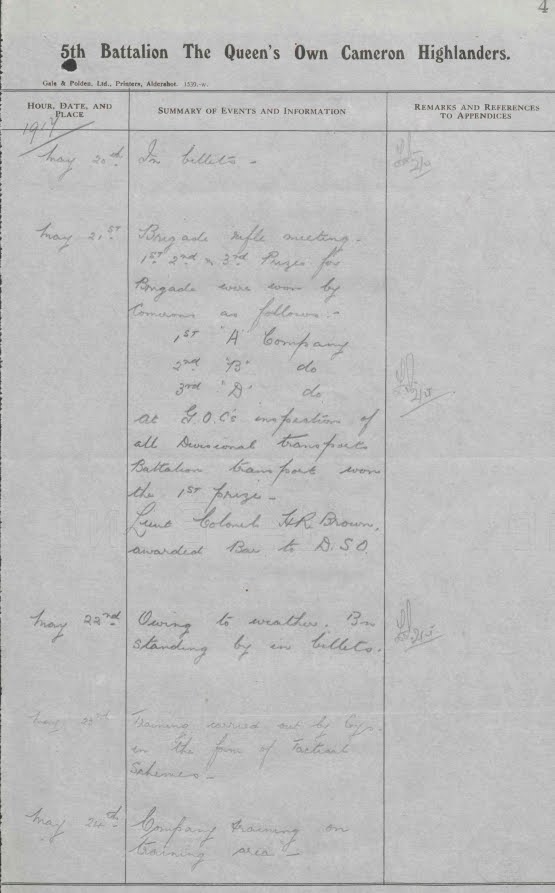 4
5th Battalion The Queen's Own Cameron Highlanders.
Gale & Polden, Ltd., Printers, Aldershot. 1535-w.
HOUR, DATE, AND PLACE
SUMMARY OF EVENTS AND INFORMATION
REMARKS AND REFERENCES TO APPENDICES
1917
May 20th. In billets -
May 21ST Brigade rifle meeting -
1ST 2nd & 3rd Prizes for
Brigade were won by
Camerons as follows:-
1ST "A" Company
2nd "B" do
3rd "D" do
At G.O.C's inspection of
all Divisional transports
Battalion transport won
the 1ST prize -
Lieut Colonel H.R. Brown,
awarded Bar to D.S.O.
May 22nd Owing to weather. Bn
standing by in billets.
May 23rd Training carried out by Coys.
in the form of Tactical
Schemes -
May 24th Company training on
training area -